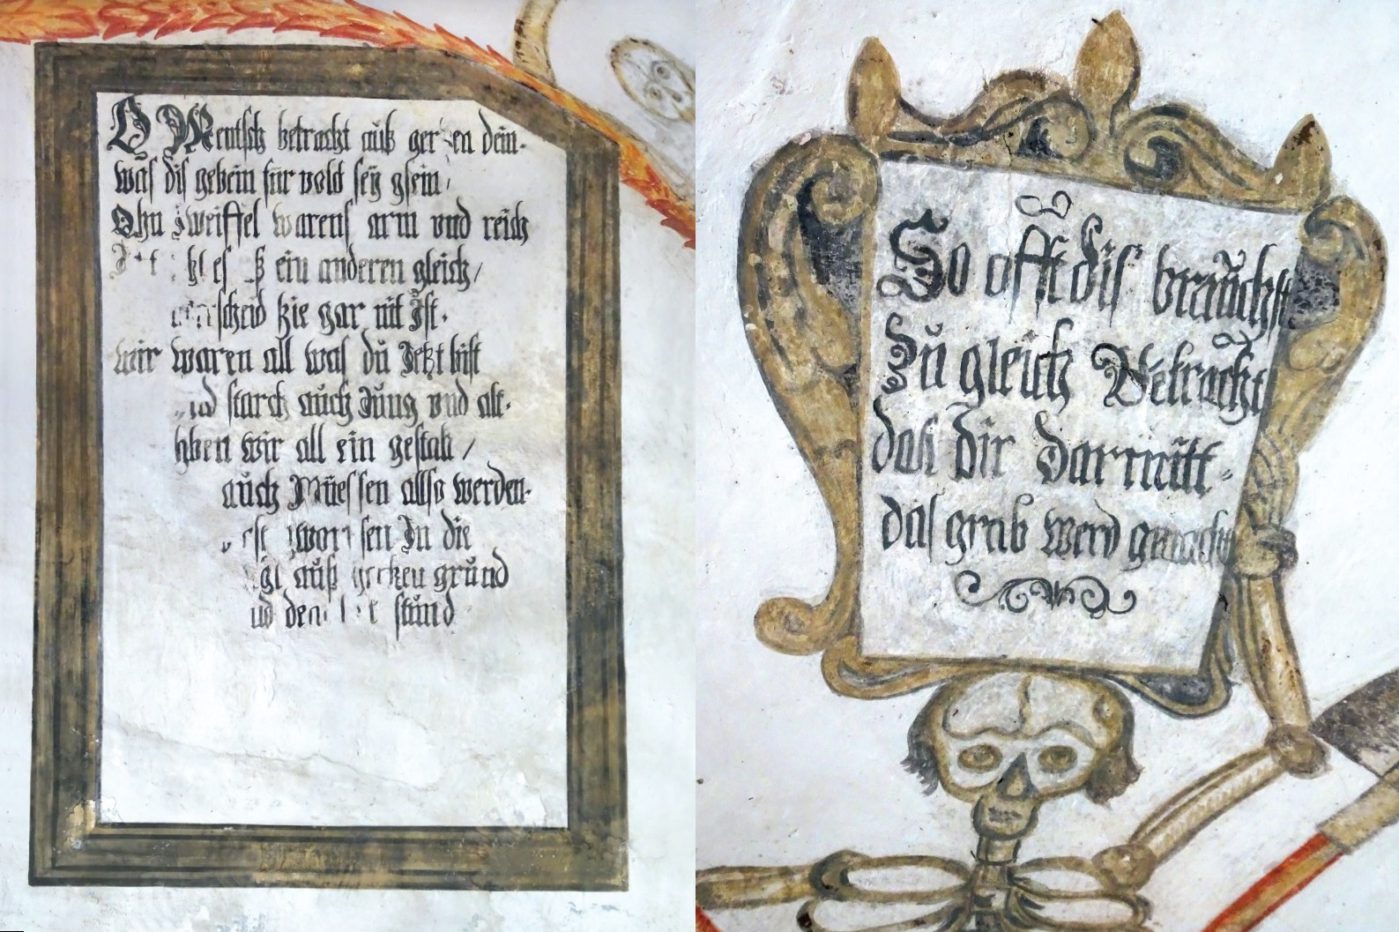 O Mentsch betracht auß
was dis gebein für volck seÿ gsein,
Ohn Zweiffel warens arm und reich
es ein anderen gleich,
hie gar nit Ist.
wir waren all was dů Jetzt bist
starck aůch Jůng und alt.
haben wir all ein gestalt,
aůch Müessen allso werden.
In die
aůß grůnd
stůnd
So offt dis braůchst
Zů gleich Betracht
das dir darmitt
das grab werd gemacht